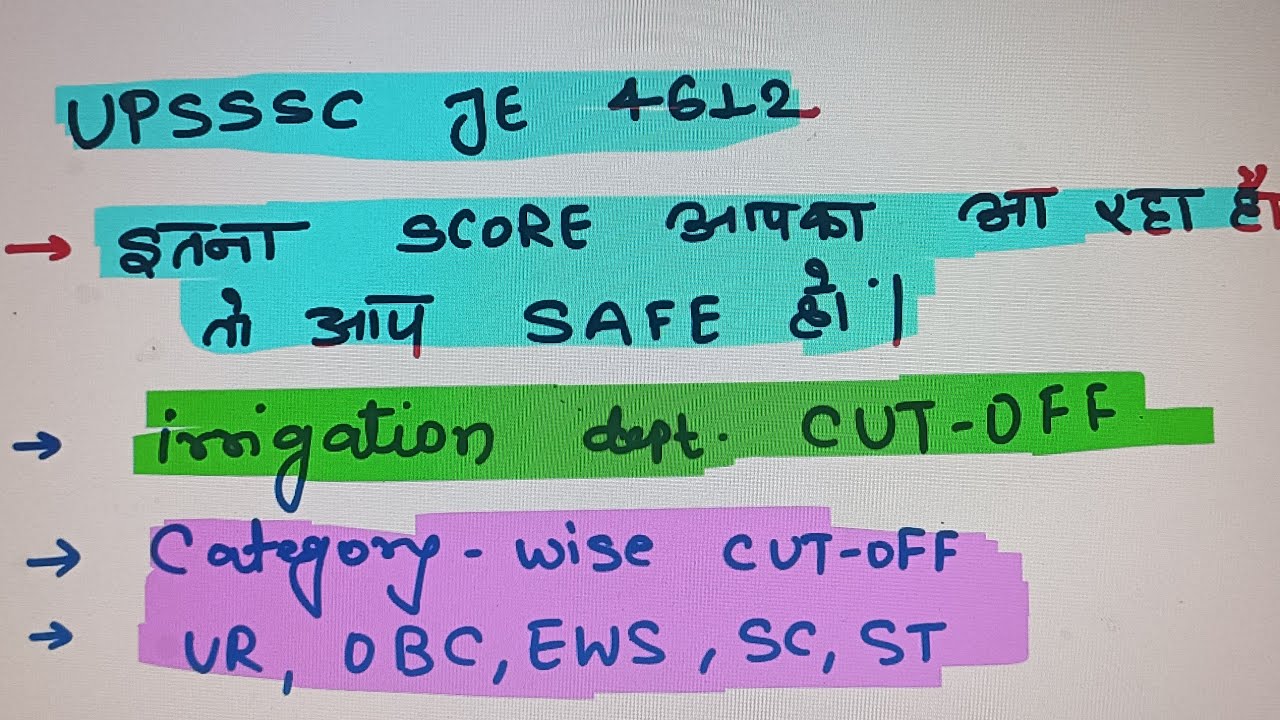 UPSSSC JE 4612
→ इतना SCORE आपका आ रहा है
तो आप SAFE हो।
→ irrigation dept. CUT-OFF
→ Category-wise CUT-OFF
→ UR, OBC, EWS, SC, ST